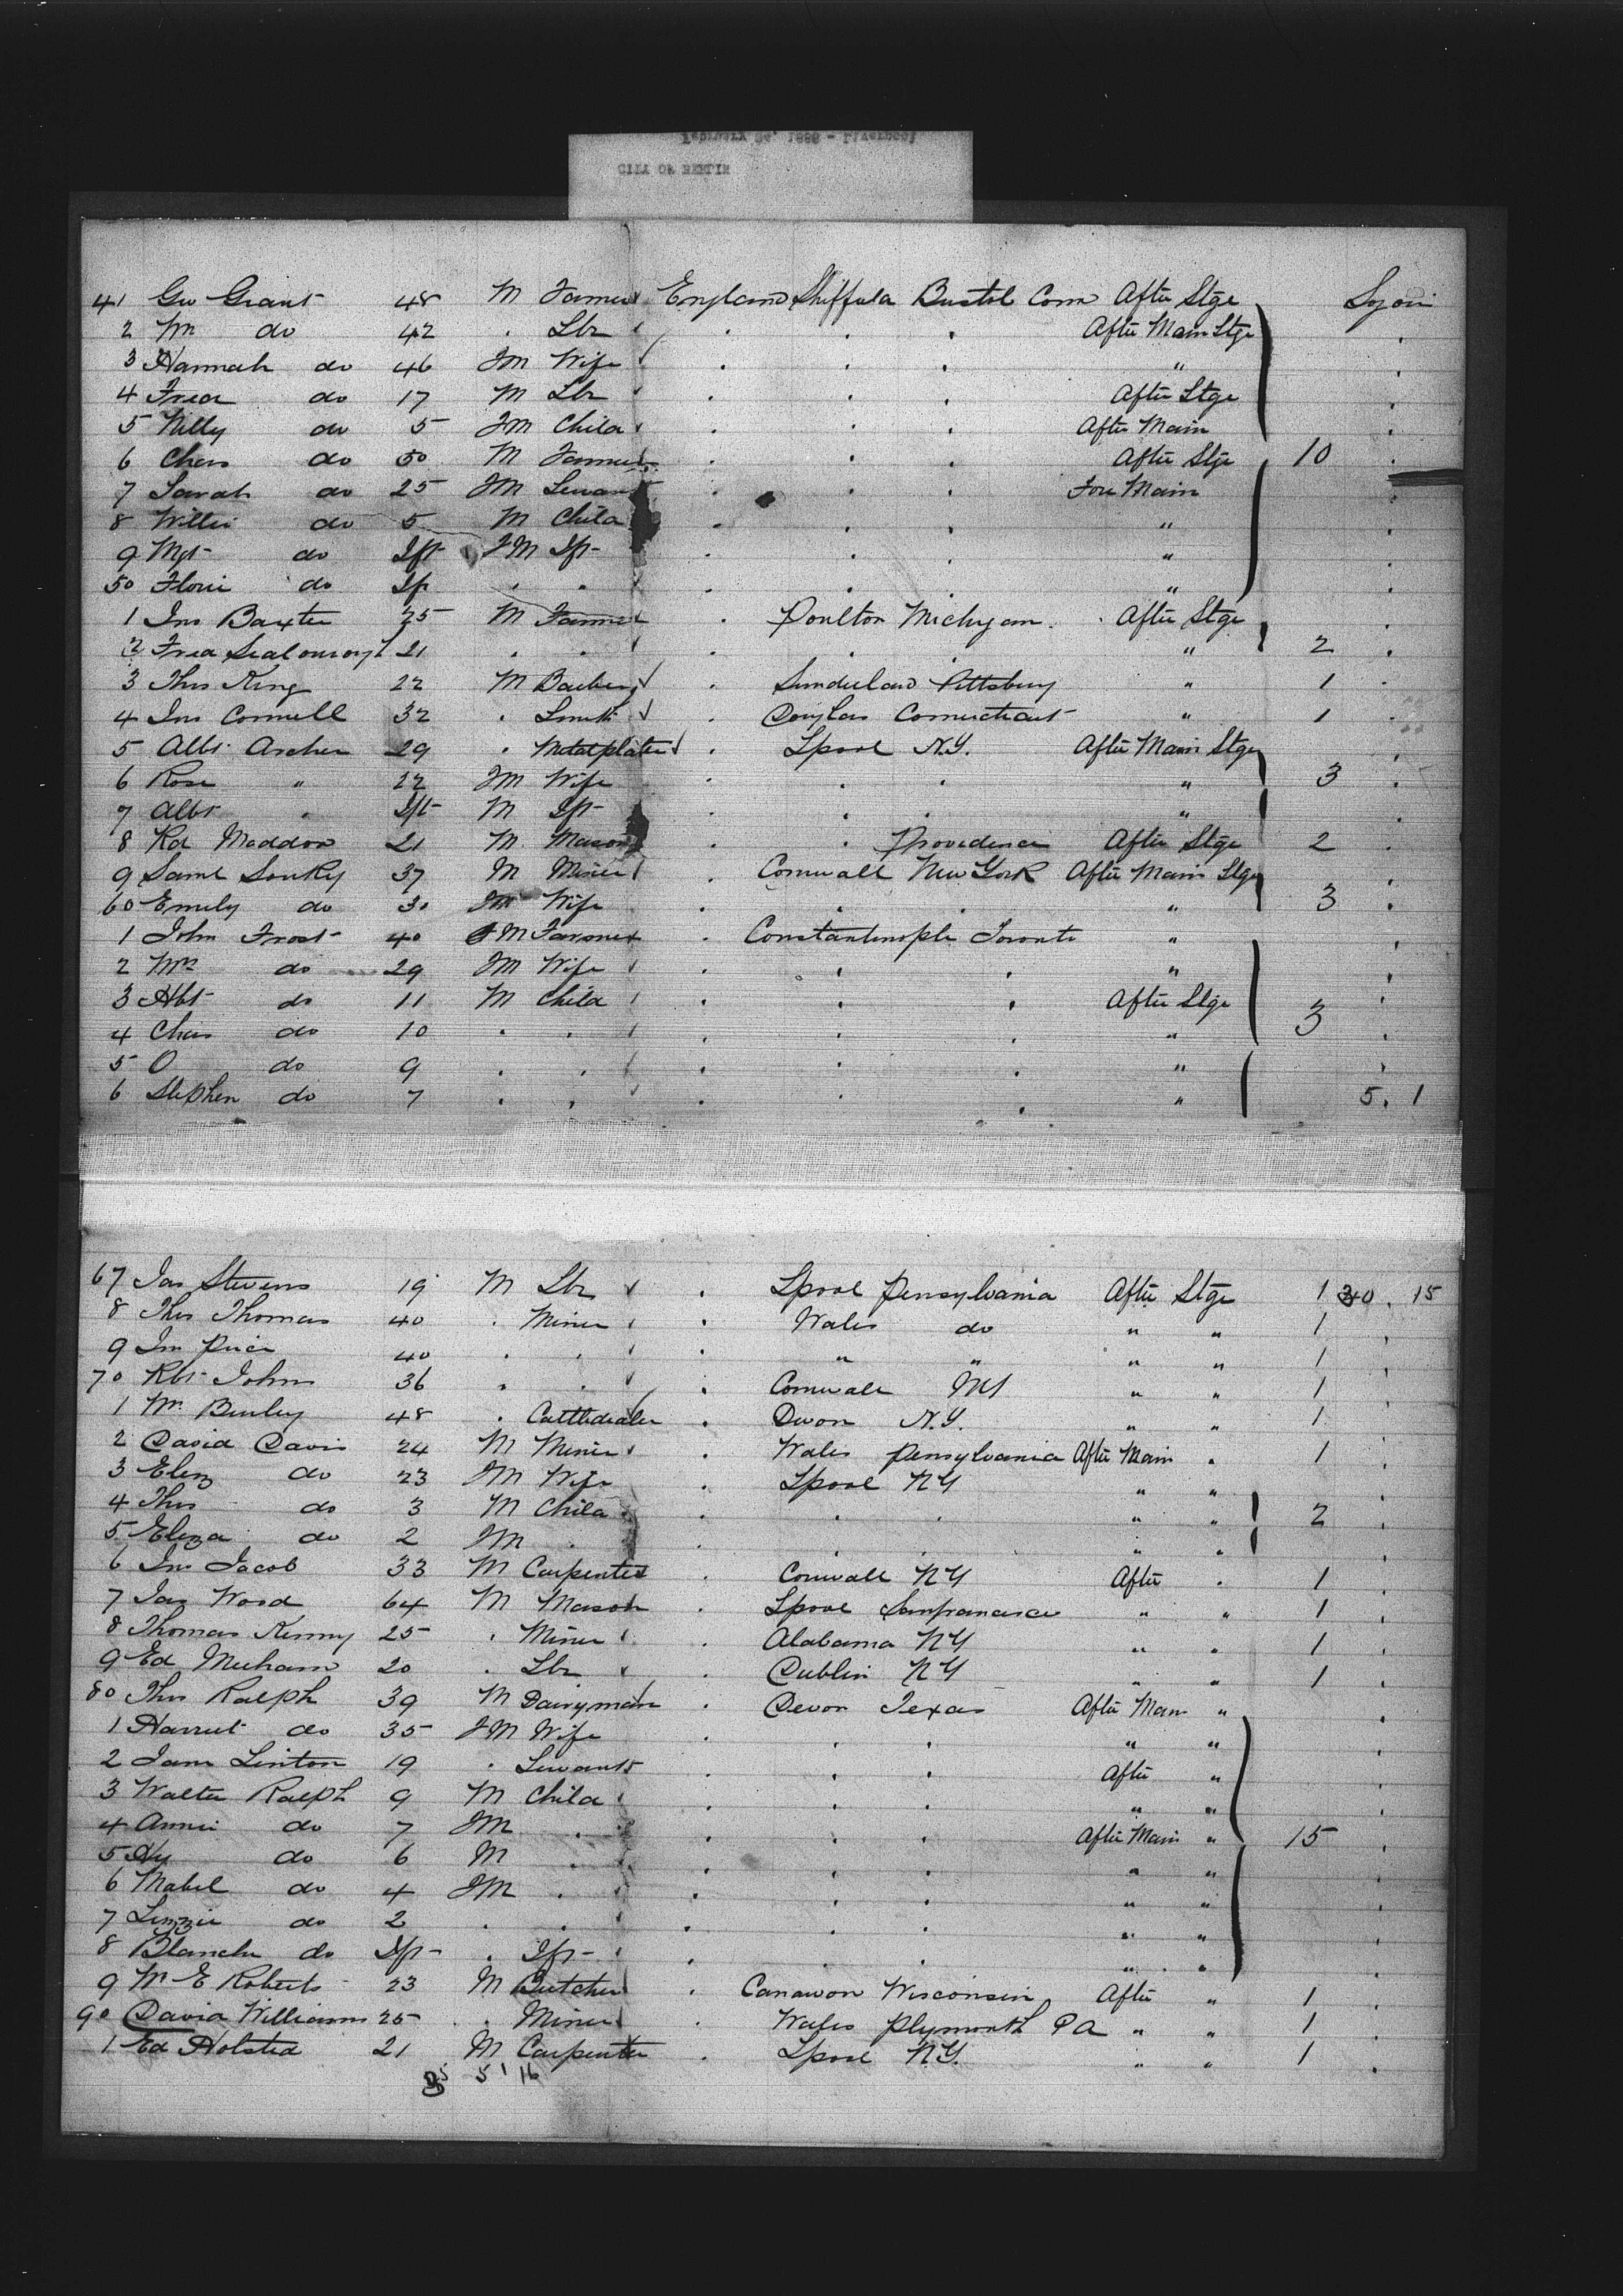 CITY OF BERLIN
41 Geo Grant 48 M Farmer England Sheffield Bristol Conn After Stge Sojour
2 Wm do 42 . Lbr . . . After Main Stge
3 Hannah do 46 FM Wife . . . "
4 Fred do 17 M Lbr . . . After Stge
5 Nelly do 5 FM Child . . . After Main
6 Chas do 50 M Farmer . . . After Stge 10
7 Sarah do 25 FM Servant . . . Fore Main
8 Willie do 5 M Child . . . "
9 Mgt do Ift FM Ift . . . "
50 Florie do If . . . . . "
1 Jno Baxter 25 M Farmer . Poulton Michigan . After Stge
2 Fred 21 . . . . . " 2
3 Thos King 22 M Barber . Sunderland Pittsburg " 1
4 Jno Connell 32 . Smith . Douglas Connecticut " 1
5 Albt Archer 29 . Metalplater . Lpool N.Y. After Main Stge
6 Rose " 22 FM Wife . . . " 3
7 Albt . Ift M Ift . . . "
8 Rd Maddox 21 M Mason . . Providence After Stge 2
9 Saml 37 M Miner . Cornwall New York After Main Stge
60 Emily do 30 FM Wife . . . " 3
1 John Frost 40 M Farmer . Constantinople Toronto "
2 Mrs do 29 FM Wife . . . "
3 Abt do 11 M Child . . . After Stge
4 Chas do 10 . . . . . " 3
5 O do 9 . . . . . "
6 Stephen do 7 . . . . . " 5. 1
67 Jas Stevens 19 M Lbr . Lpool Pensylvania After Stge 1 340. 15
8 Thos Thomas 40 . Miner . Wales do " " 1
9 Jno Price 40 . . . " " " " 1
70 Rbt Johns 36 . . . Cornwall NY " " 1
1 Wm Burley 48 . Cattledealer . Devon N.Y. " " 1
2 David Davis 24 M Miner . Wales Pensylvania After Main . 1
3 Eliz do 23 FM Wife . Lpool NY " "
4 Thos do 3 M Child . . . " " 2
5 Eliza do 2 FM . . . . " "
6 Jno Jacob 33 M Carpenter . Cornwall NY After . 1
7 Jas Wood 64 M Mason . Lpool Sanfrancisco " " 1
8 Thomas Kenny 25 . Miner . Alabama NY " " 1
9 Ed Meeham 20 . Lbr . Dublin NY " " 1
80 Thos Ralph 39 M Dairyman . Devon Texas After Main "
1 Harriet do 35 FM Wife . . . " "
2 Jane Linton 19 . Servant . . . After "
3 Walter Ralph 9 M Child . . . " "
4 Annie do 7 FM . . . . After Main " 15
5 Hy do 6 M . . . . " "
6 Mabel do 4 FM . . . . " "
7 Lizzie do 2 . . . . . " "
8 Blanche do Ift . Ift . . . " "
9 Wm E Roberts 23 M Butcher . Canarvon Wisconsin After " 1
90 David Williams 25 . Miner . Wales Plymouth PA " " 1
1 Ed Holsted 21 M Carpenter . Lpool N.Y. " " 1
35 5 1 16